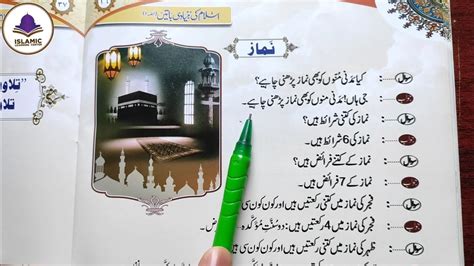 ISLAMIC
اسلام کی بنیادی باتیں
۳۷
نماز
سوال کیا مَدَنی مُنّوں کو بھی نماز پڑھنی چاہیے؟
جواب جی ہاں! مَدَنی منّوں کو بھی نماز پڑھنی چاہیے۔
سوال نماز کی کتنی شرائط ہیں؟
جواب نماز کی 6 شرائط ہیں۔
سوال نماز کے کتنے فرائض ہیں؟
جواب نماز کے 7 فرائض ہیں۔
سوال فجر کی نماز میں کتنی رکعتیں ہیں اور کون کون سی
جواب فجر کی نماز میں 4 رکعتیں ہیں: دو سنّتِ مؤکدہ
سوال ظہر کی نماز میں کتنی رکعتیں ہیں اور کون کون سی
"تِلاو
تلاو